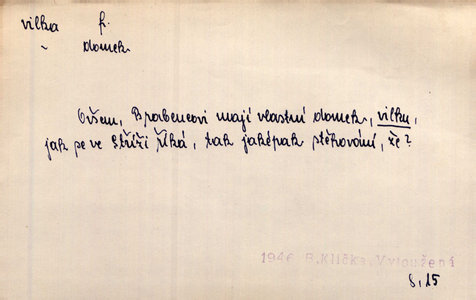 vilka f.
~ domek
Ovšem, Brabencovi mají vlastní domek, vilku,
jak se ve Stříži říká, tak jaképak stěhování, že?
1946 B.Klička. Vyloužení
s. 15